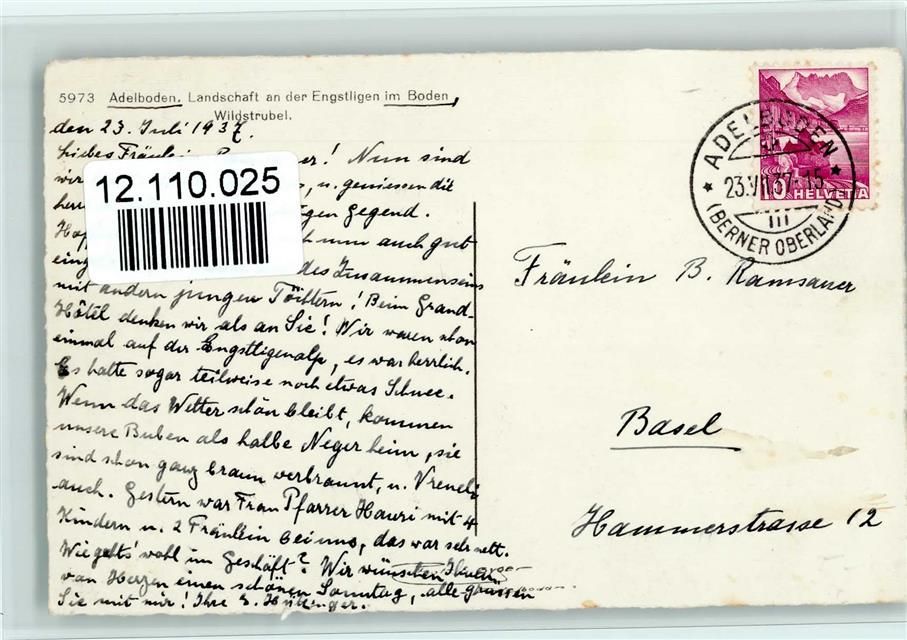 5973 Adelboden. Landschaft an der Engstligen im Boden,
Wildstrubel.
den 23. Juli 1937.
Liebes Fräulein ! Nun sind
wir u. geniessen die
Gegend.
nun auch gut
des Zusammenseins
mit andern jungen Töchtern! Beim Grand-
Hôtel denken wir als an Sie! Wir waren schon
einmal auf der Engstligenalp, es war herrlich.
Es hatte sogar teilweise noch etwas Schnee.
Wenn das Wetter schön bleibt, kommen
unsere Buben als halbe Neger heim, sie
sind schon ganz braun verbrannt, u. Vreneli
auch. Gestern war Frau Pfarrer Hauri mit 4
Kindern u. 2 Fräulein bei uns, das war sehr nett.
Wie geht's wohl im Geschäft? Wir wünschen Ihnen
von Herzen einen schönen Sonntag, alle grüssen
Sie mit mir! Ihre
12.110.025
ADELBODEN
23.VII.37-15
(BERNER OBERLAND)
10 HELVETIA
Fräulein B. Ramsauer
Basel
Hammerstrasse 12